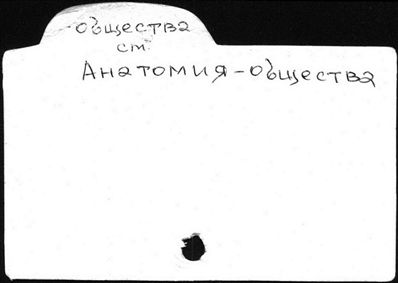 общества
см.
Анатомия-общества